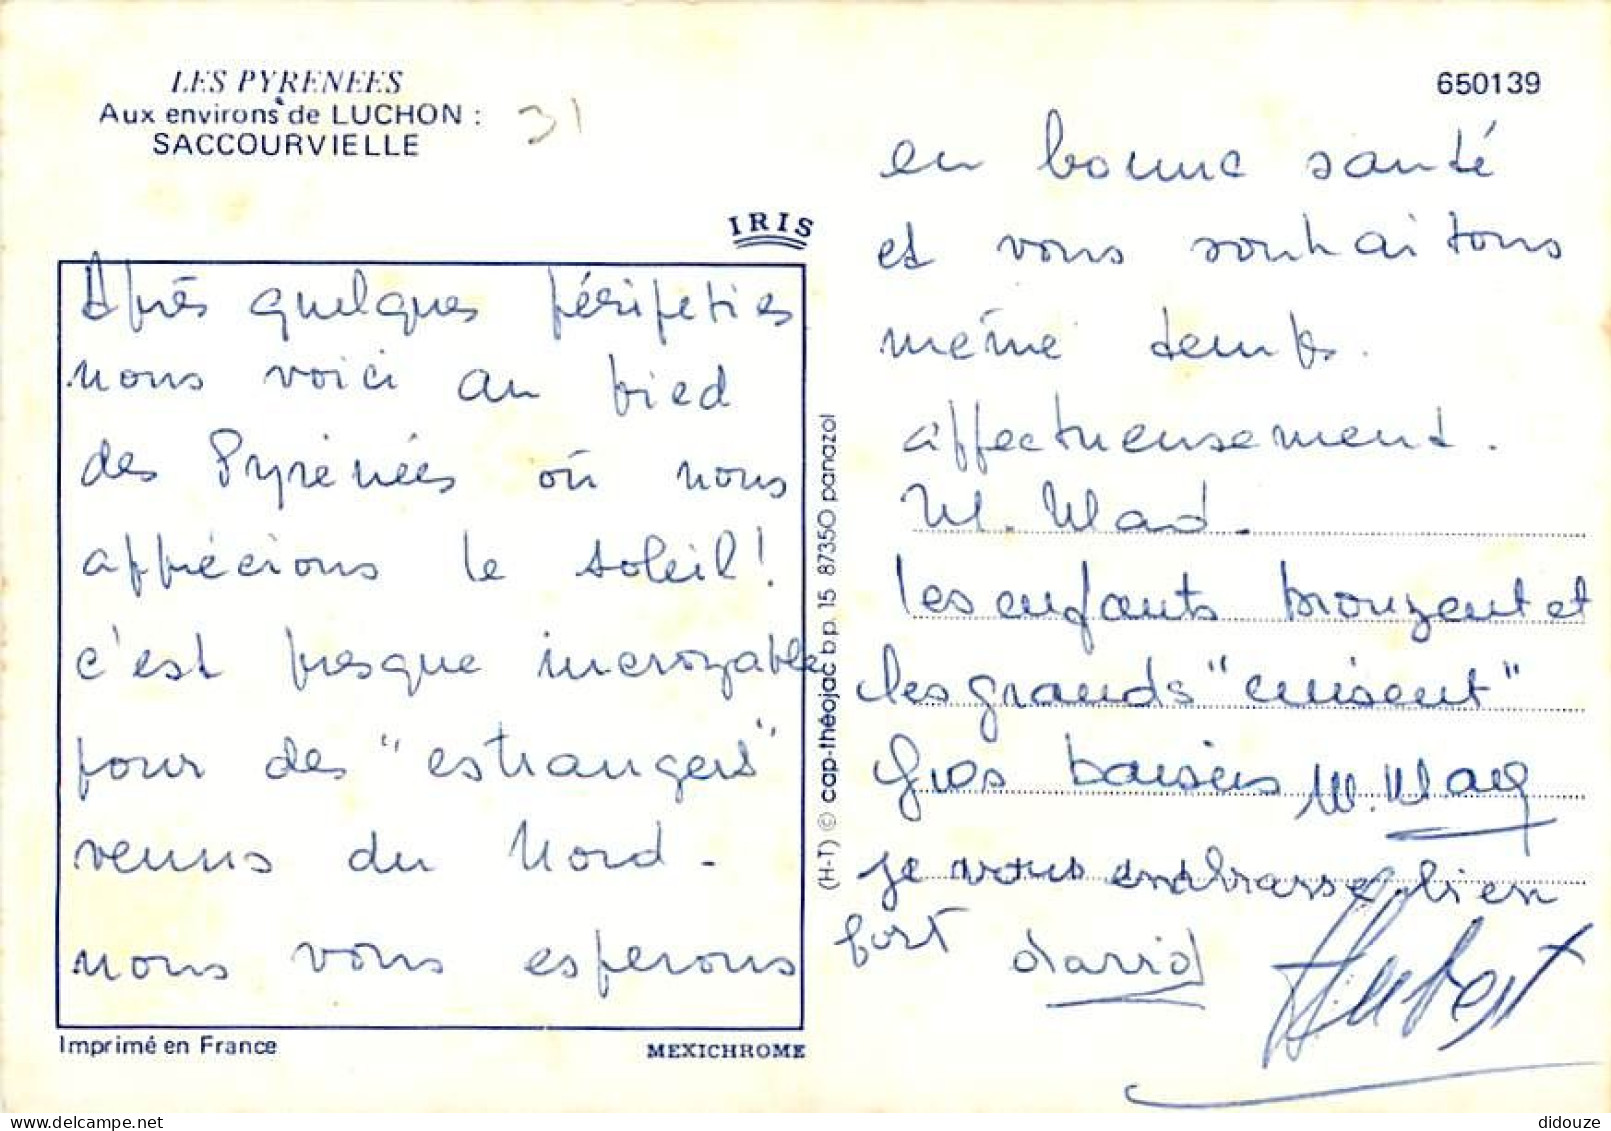 LES PYRENEES
Aux environs de LUCHON :
SACCOURVIELLE
31
650139
IRIS
Après quelques péripeties
nous voici au pied
des Pyrénées où nous
apprécions le soleil !
c'est presque incroyable
pour des "estrangers"
venus du Nord -
nous vous esperons
Imprimé en France
MEXICHROME
(H-T) © cap-théojac b.p. 15 87350 panazol
en bonne santé
et vous souhaitons
même temps.
affectueusement.
M.
les enfants bronzent et
les grands "cuisent"
Gros baisers M.
je vous embrasse bien
fort david
Hubert
didouze